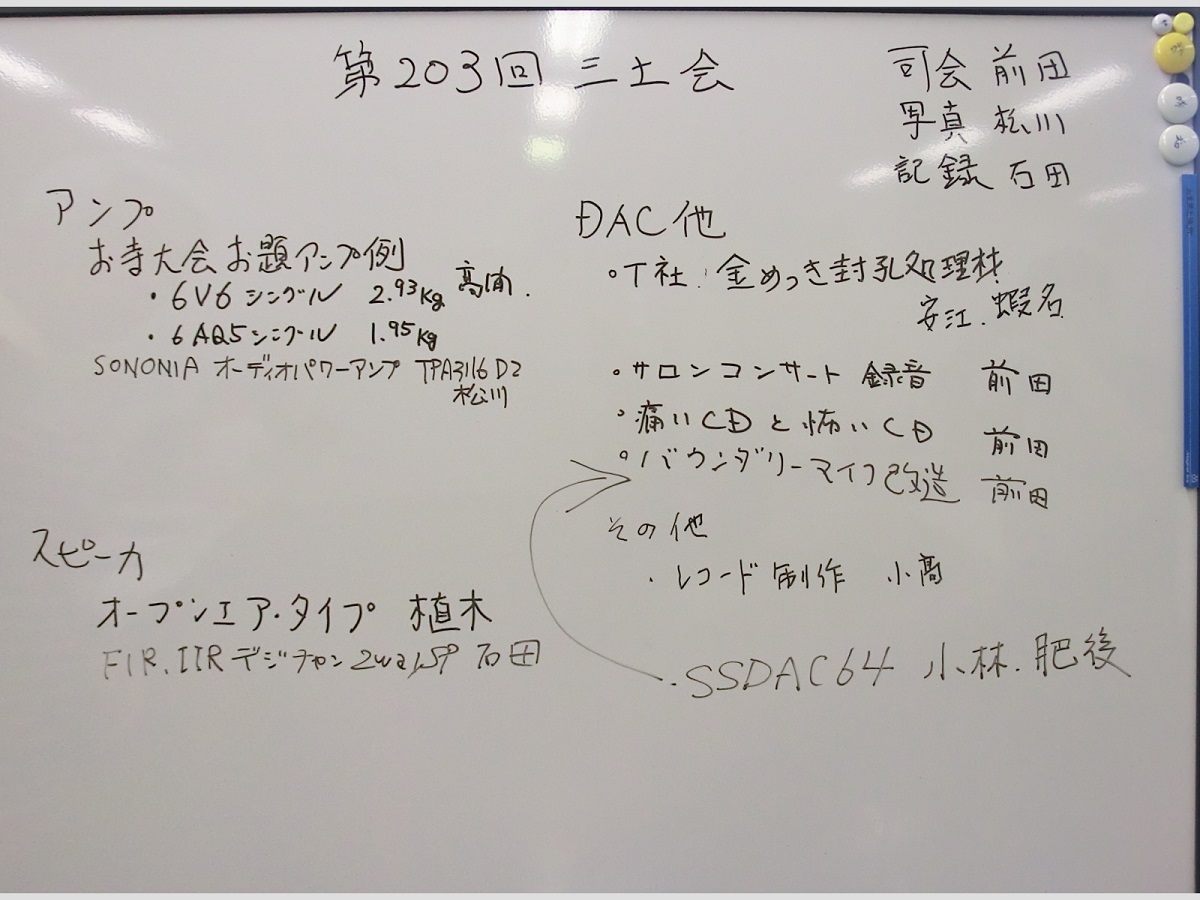 第203回 三土会
司会 前田
写真 松川
記録 石田
アンプ
お寺大会 お題アンプ例
・6V6 シングル 2.93Kg 高
・6AQ5 シングル 1.95Kg
SONONIA オーディオパワーアンプ TPA3116D2
松川
スピーカ
オープンエア・タイプ 植木
FIR.IIR デジチャン 2way SP 石田
DAC他
・T社:金めっき封孔処理材
安江.蝦名
・サロンコンサート 録音 前田
・痛いCDと怖いCD 前田
・バウンダリーマイク改造 前田
その他
・レコード制作 小高
・SSDAC64 小林.肥後